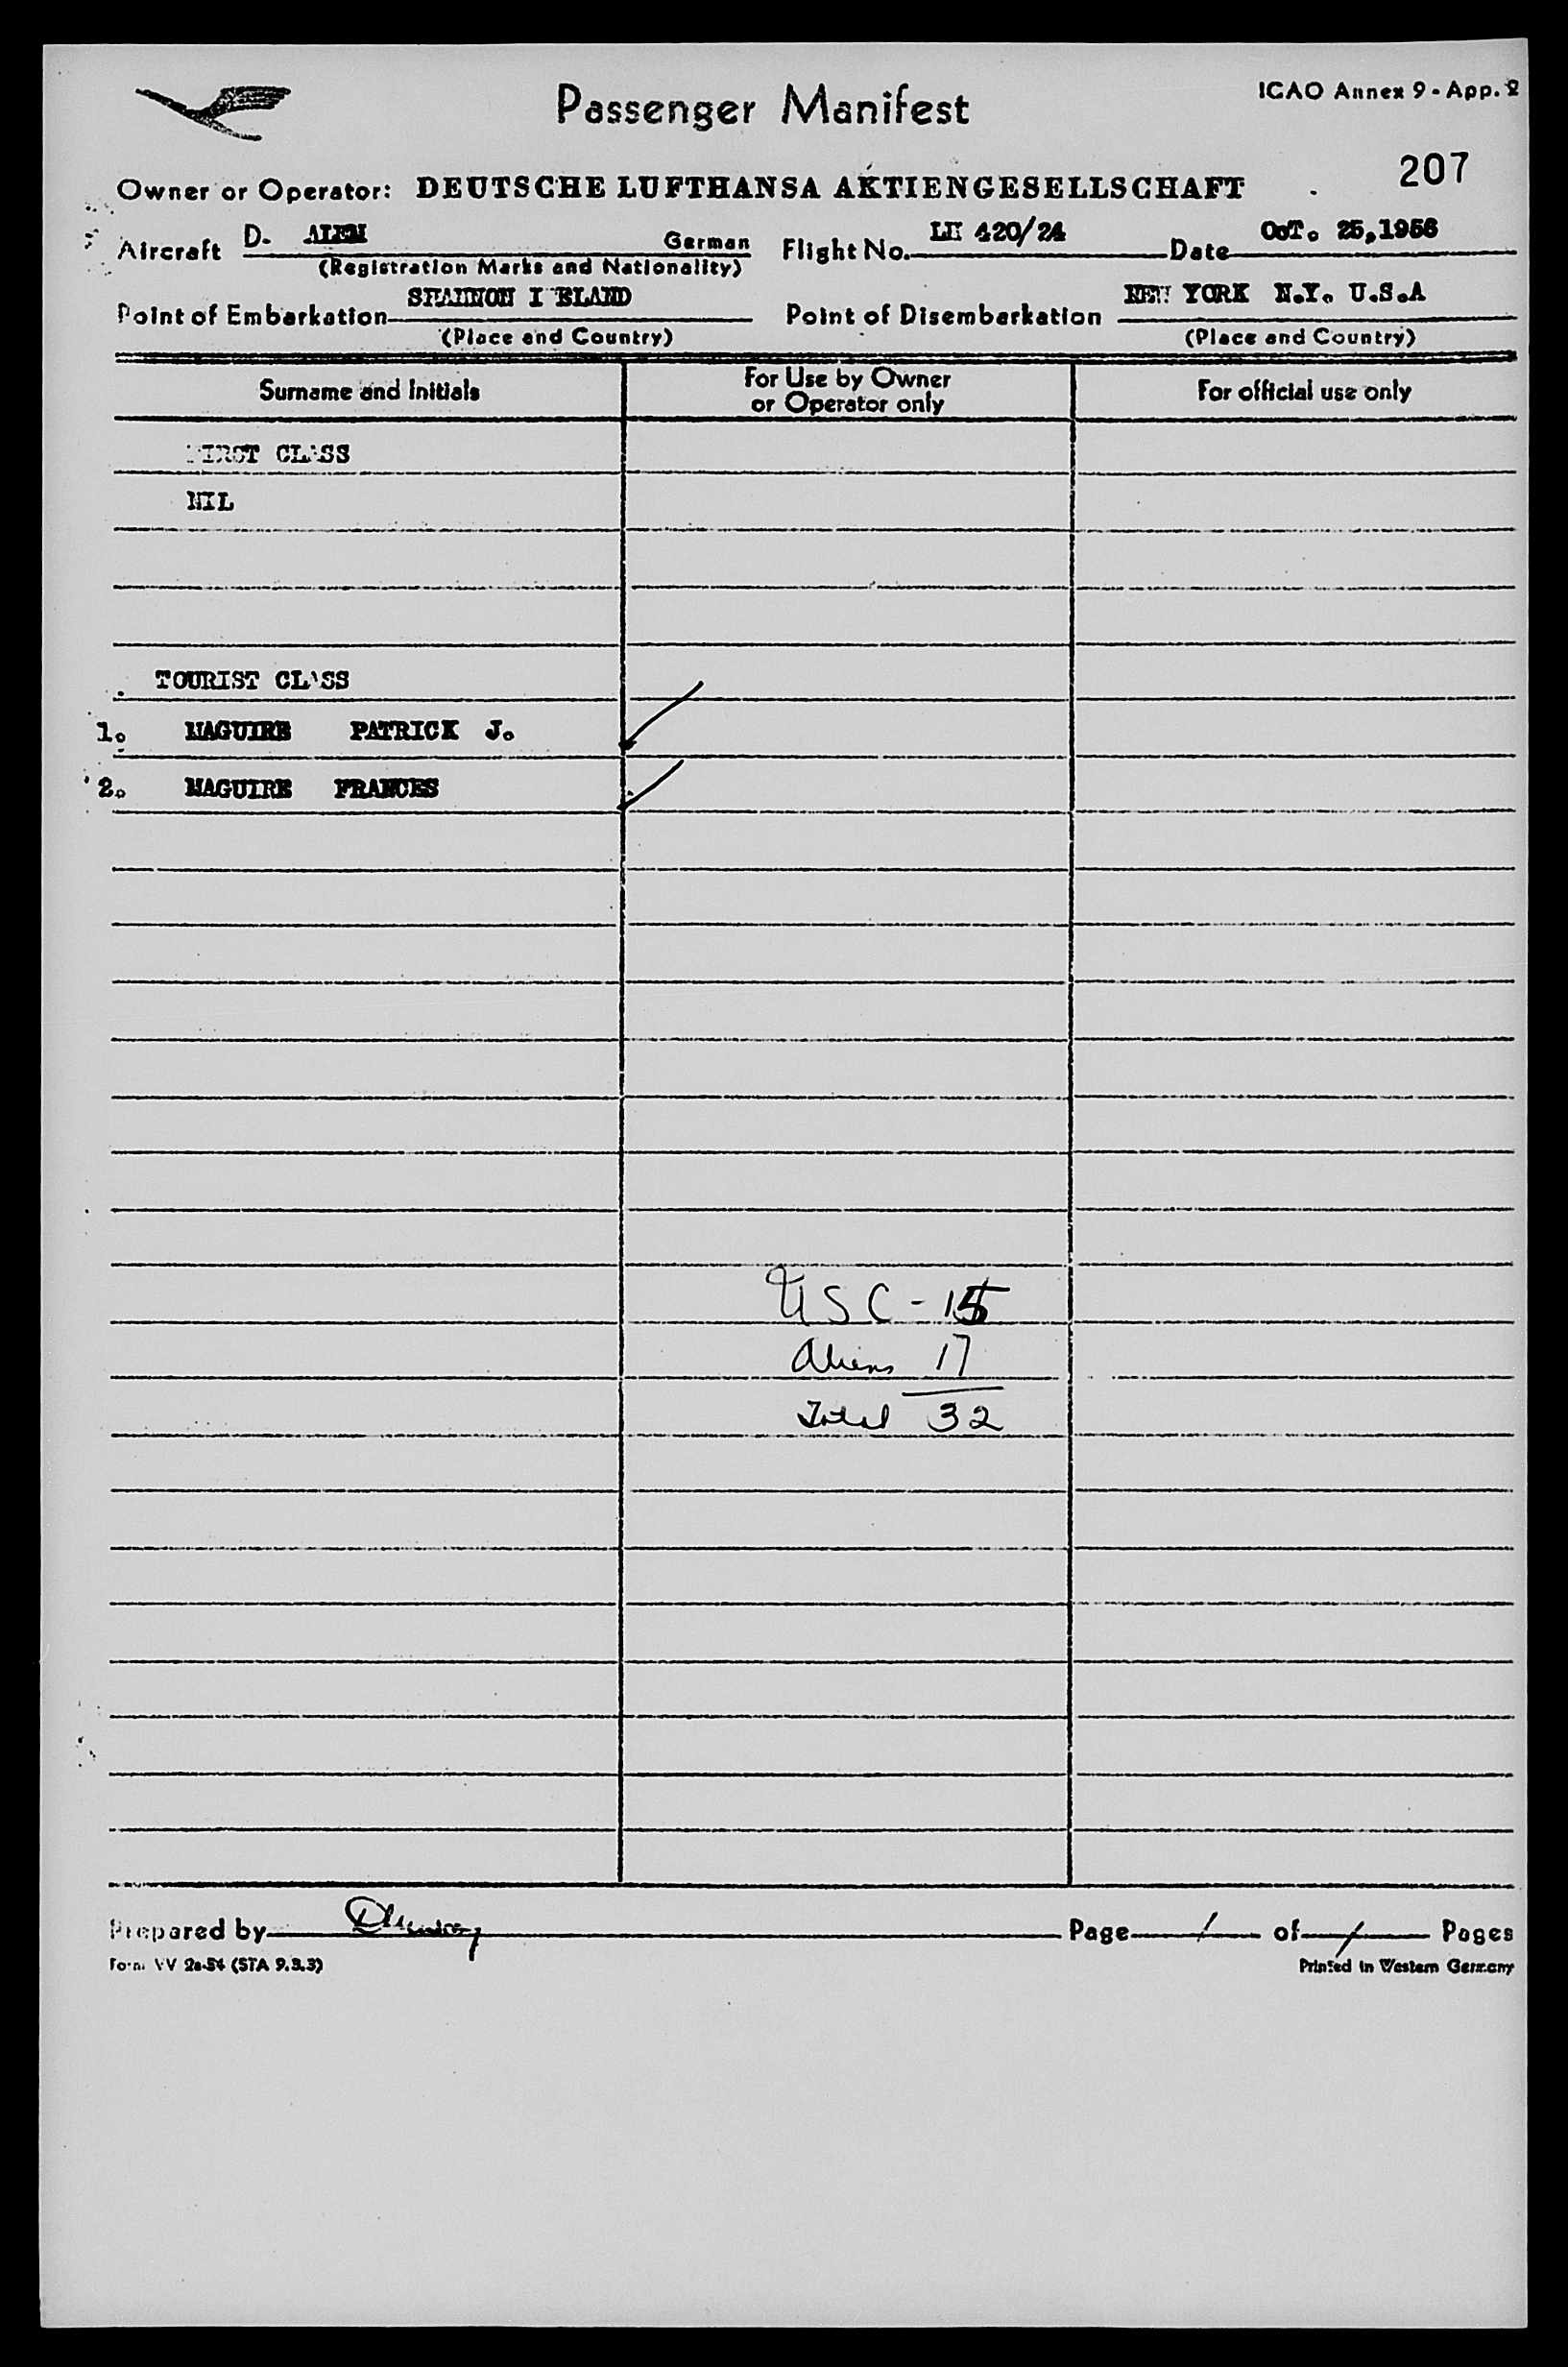 Passenger Manifest
ICAO Annex 9 - App. 2
207
Owner or Operator: DEUTSCHE LUFTHANSA AKTIENGESELLSCHAFT
Aircraft D- ALEM German Flight No. LH 420/24 Date OcT. 25,1956
(Registration Marks and Nationality)
Point of Embarkation SHANNON I ELAND Point of Disembarkation NEW YORK N.Y. U.S.A
(Place and Country) (Place and Country)
Surname and Initials For Use by Owner or Operator only For official use only
FIRST CLASS
NIL
TOURIST CLASS
1. MAGUIRE PATRICK J.
2. MAGUIRE FRANCES
USC - 15
Aliens 17
Total 32
Prepared by Page 1 of 1 Pages
Form VV 2a-54 (STA 9.3.3) Printed in Western Germany